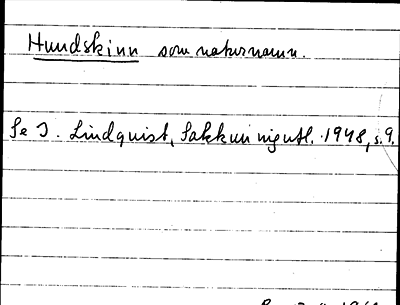 Hundskinn som naturnamn.
Se I. Lindquist, Sakkunnigutl. 1948, s. 9.